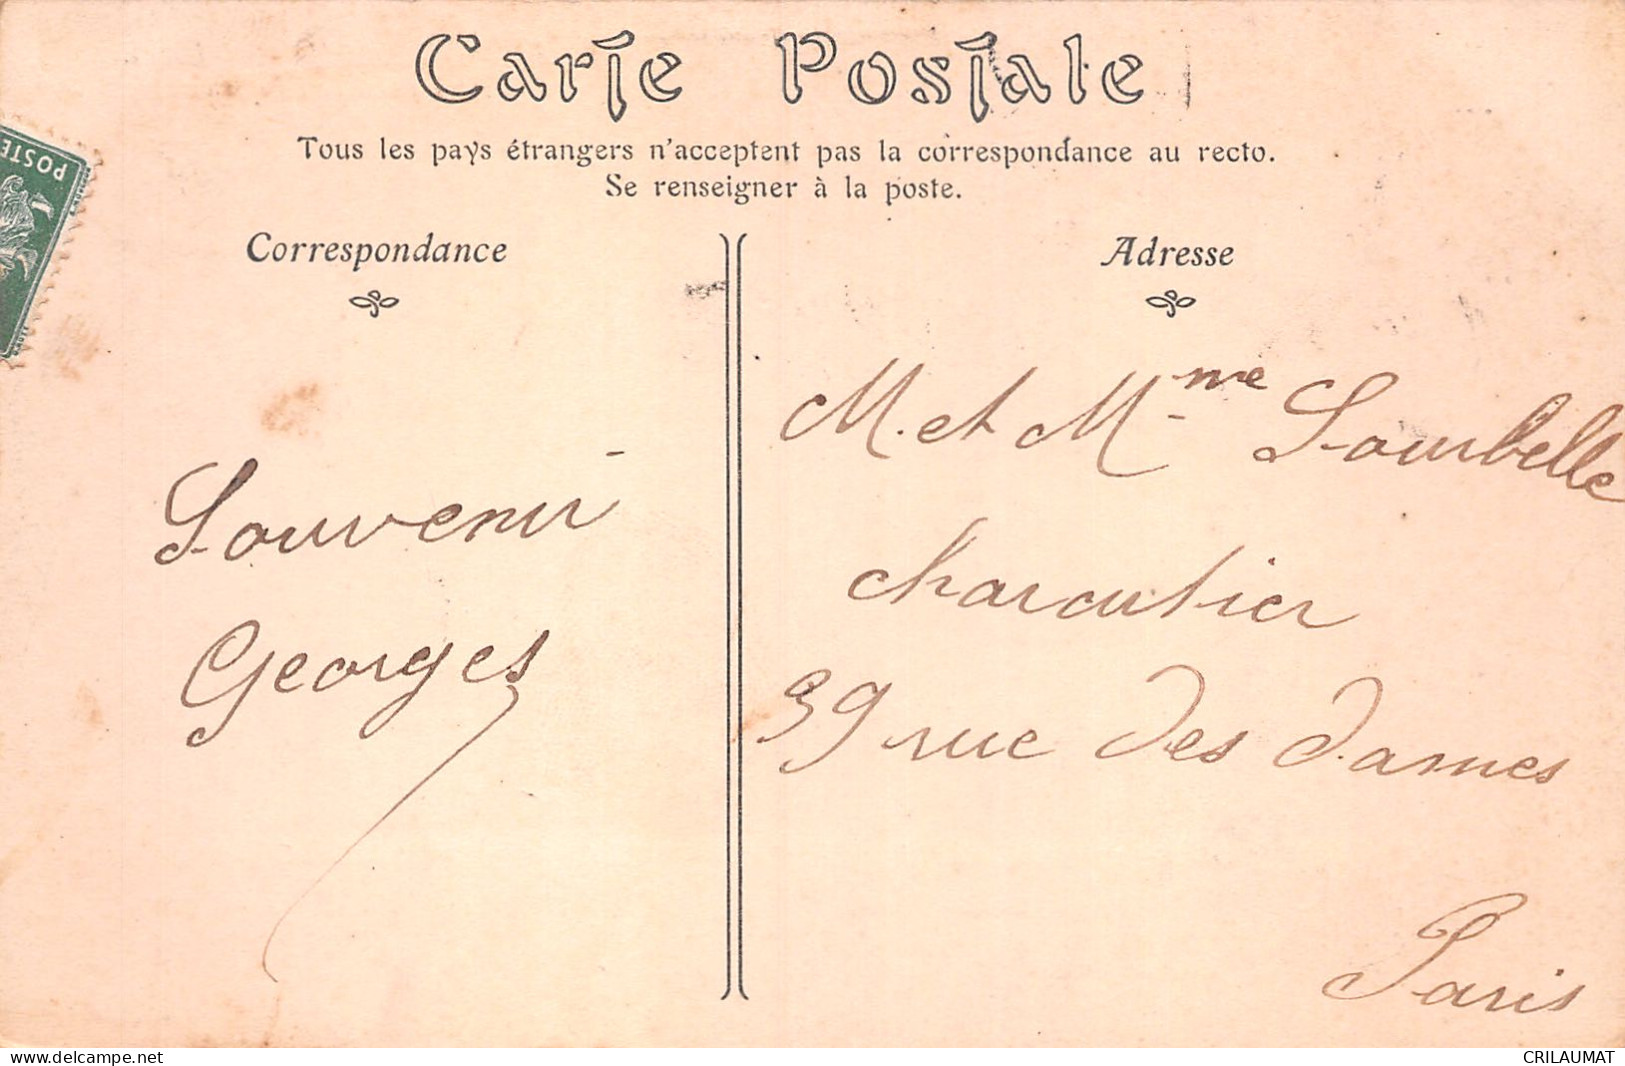 Carte Postale
Tous les pays étrangers n'acceptent pas la correspondance au recto.
Se renseigner à la poste.
POSTE
Correspondance
Souvenir
Georges
Adresse
M. et Mme Sourbelle
charcutier
39 rue des dames
Paris
www.delcampe.net
CRILAUMAT